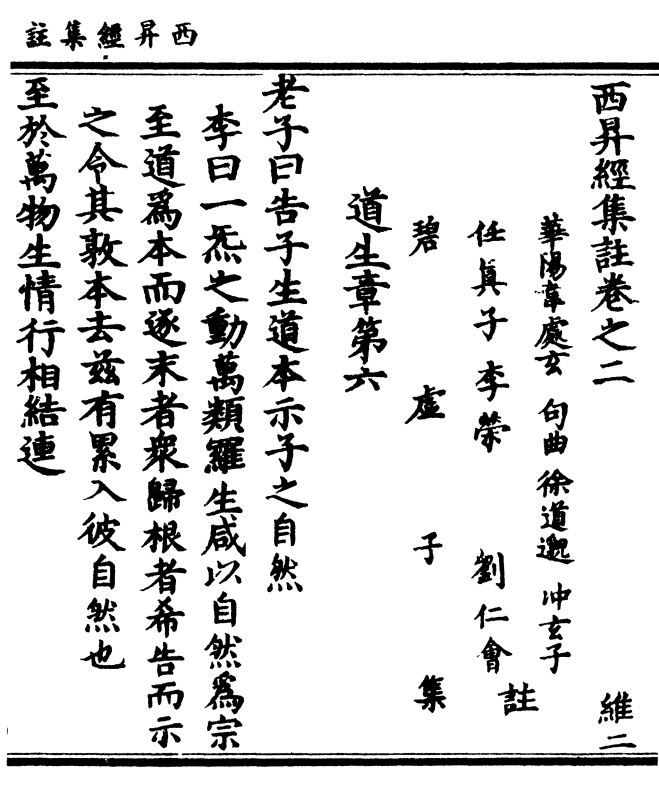 西昇經集註
西昇經集註卷之二 維二
華陽韋處玄 句曲徐道邈 冲玄子
任眞子李榮 劉仁會 註
碧虛子 集
道生章第六
老子曰告子生道本示子之自然
李曰一炁之動萬類羅生咸以自然爲宗
至道爲本而逐末者衆歸根者希告而示
之令其敦本去玆有累入彼自然也
至於萬物生情行相結連